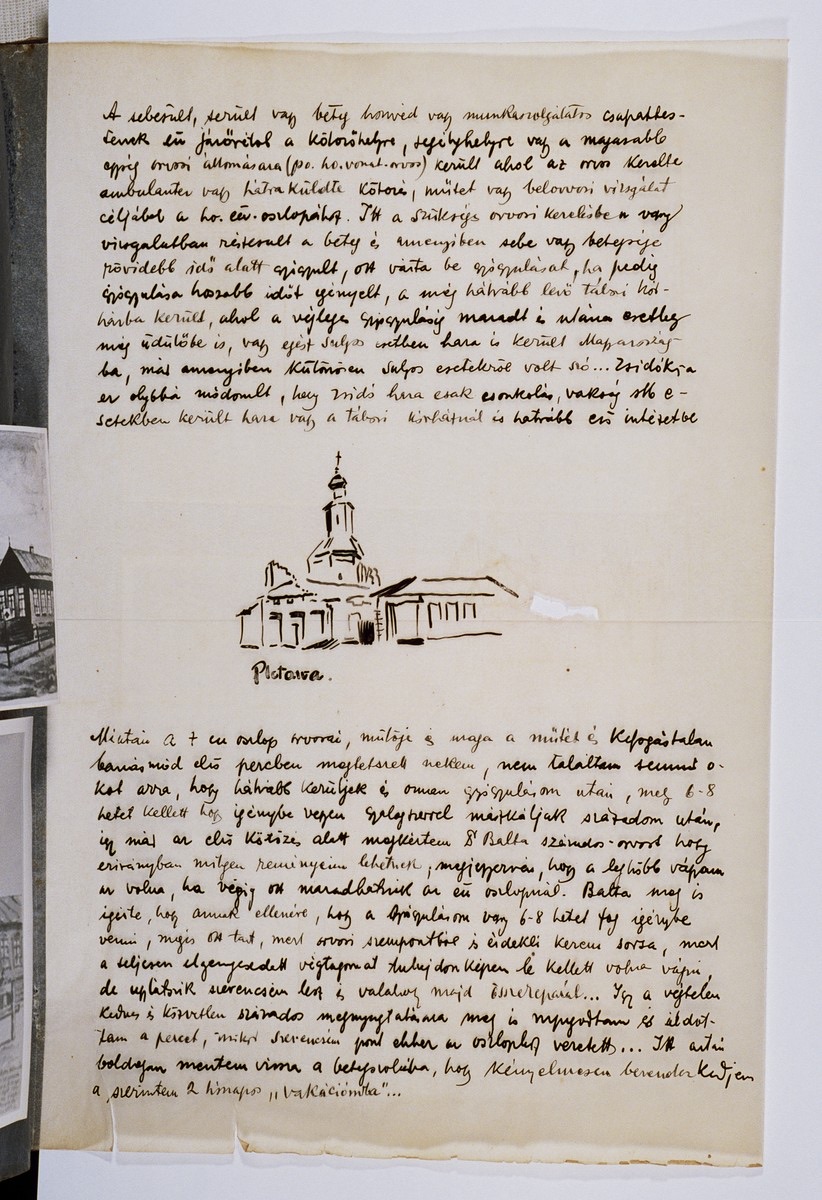 A sebesült, sérült vagy beteg honvéd vagy munkaszolgálatos csapattes-
tének eü járőrétől a kötözőhelyre, segélyhelyre vagy a magasabb
egység orvosi állomására (po. ho. vonat-orvos) került ahol az orvos kezelte
ambulanter vagy hátra küldte kötözés, műtét vagy belorvosi vizsgálat
céljából a ho. eü. oszlopához. Itt a szükséges orvosi kezelésben vagy
vizsgálatban részesült a beteg és amenyiben sebe vagy betegsége
rövidebb idő alatt gyógyult, ott várta be gyógyulását, ha pedig
gyógyulása hosszabb időt igényelt, a még hátrább levő tábori kór-
házba került, ahol a végleges gyógyulásig maradt és utána esetleg
még üdülőbe is, vagy egész súlyos esetben haza is került Magyarország-
ba, már amenyiben különösen súlyos esetekről volt szó... Zsidókra
ez olybbá módosult, hogy zsidó haza csak csonkolás, vakság stb e-
setekben került haza vagy a tábori kórháznál is hátrább eső intézetbe
Plotawa.
Miután a 7 eü oszlop orvosai, műtője és maga a műtét és kifogástalan
bánásmód első percben megtetszett nekem, nem találtam semmi o-
kot arra, hogy hátrább kerüljek és onnan gyógyulásom után, meg 6-8
hetet kellett hogy igénybe vegyen gyalogszerrel mászkáljak századom után,
így már az első kötözés alatt megkértem Balta százados-orvost hogy
ezirányban milyen reményeim lehetnek, megjegyezvén, hogy a legfőbb vágyam
az volna, ha végig ott maradhatnék az eü oszlopnál. Balta meg is
igérte, hogy annak ellenére, hogy a gyógyulásom vagy 6-8 hetet fog igénybe
venni, mégis ott tart, mert orvosi szempontból is érdekli kezem sorsa, mert
a teljesen elgennyesedett végtagomat tulajdonképen le kellett volna vágni,
de uglátszik szerencsém lesz és valahogy majd összereparál... Így a végtelen
kedves és közvetlen százados megnyugtatására meg is nyugodtam és áldot-
tam a percet, mikor szerencsém pont ehhez az oszlophoz vezetett... Itt aztán
boldogan mentem vissza a betegszobába, hogy kényelmesen berendezkedjem
a szerintem 2 hónapos „vakációmba"...